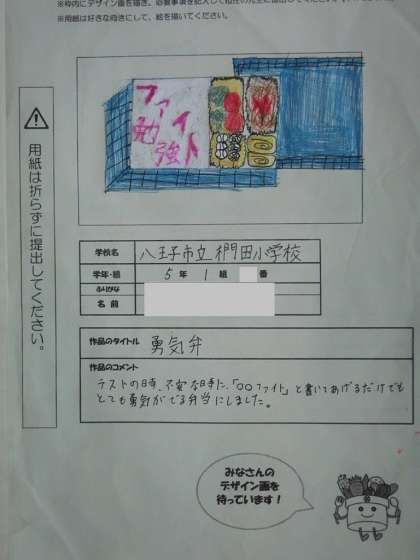 ※枠内にデザイン画を描き、必要事項を記入して担任の先生に提出してください。
※用紙は好きな向きにして、絵を描いてください。
ファイト
勉強
用紙は折らずに提出してください。
学校名 八王子市立椚田小学校
学年・組 5年 1組 番
ふりがな
名前
作品のタイトル 勇気弁
作品のコメント
テストの時、不安な時に、「○○ファイト」と書いてあげるだけでも
とても勇気がでる弁当にしました。
みなさんの
デザイン画を
待っています!